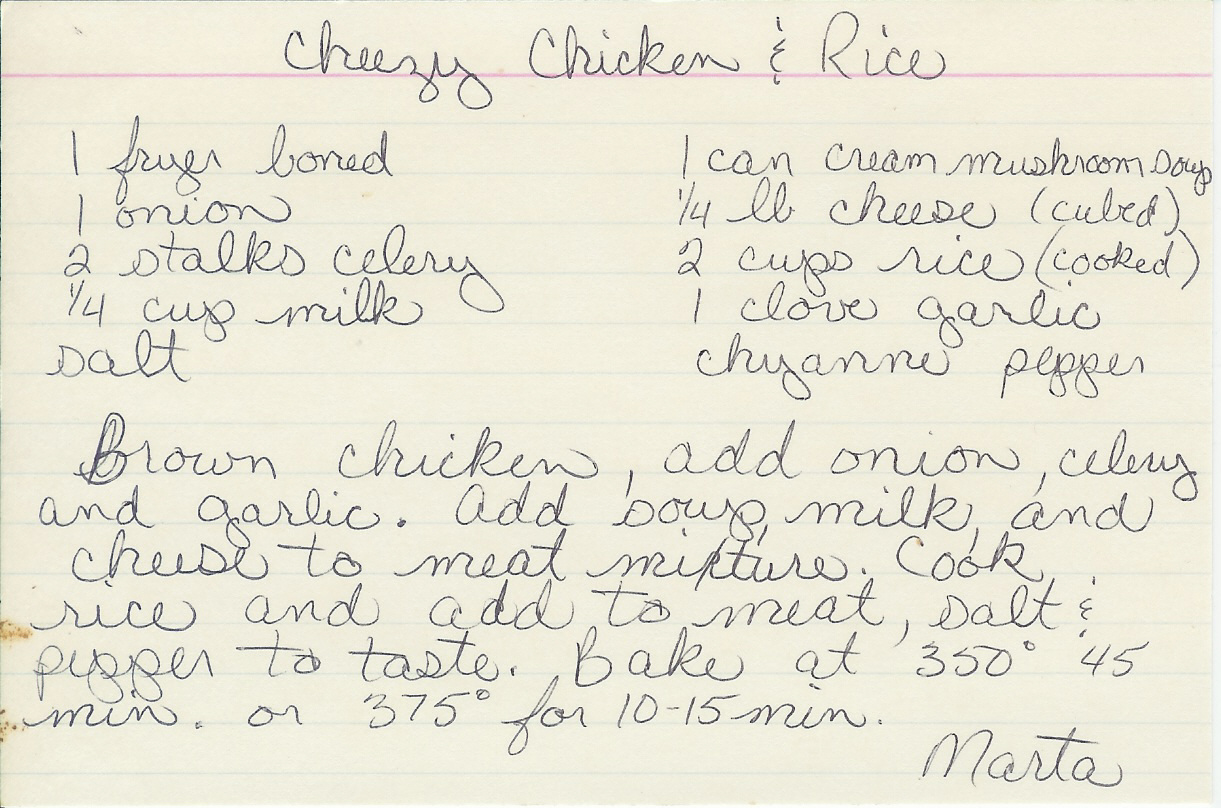 Cheezy Chicken & Rice
1 fryer boned
1 onion
2 stalks celery
1/4 cup milk
salt
1 can cream mushroom soup
1/4 lb cheese (cubed)
2 cups rice (cooked)
1 clove garlic
chyanne pepper
Brown chicken, add onion, celery
and garlic. Add soup, milk, and
cheese to meat mixture. Cook
rice and add to meat, salt &
pepper to taste. Bake at 350° 45
min. or 375° for 10-15 min.
Marta